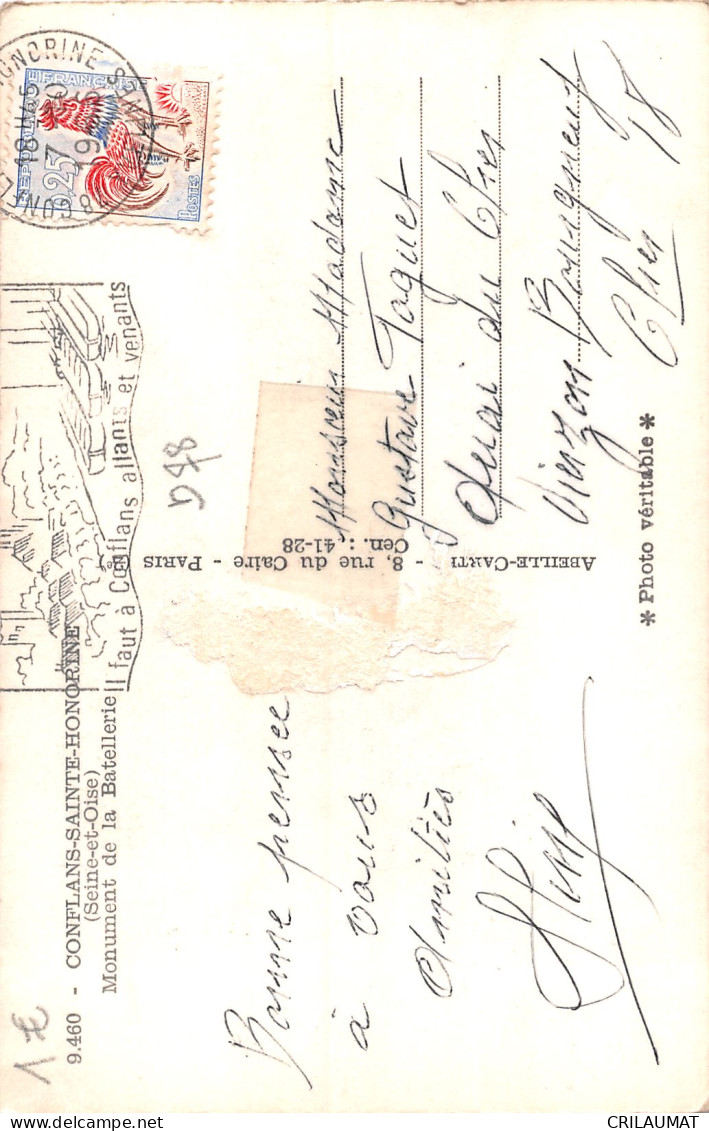 9.460 - CONFLANS-SAINTE-HONORINE
(Seine-et-Oise)
Monument de la Batellerie
Il faut à Conflans allants et venants
REPUBLIQUE FRANÇAISE
0,25
POSTES
18 H45
1965
1€
Bonne pensée
à vous
Amitiés
ABEILLE-CARTE - 8, rue du Caire - PARIS (2e)
Cen. : 41-28
* Photo véritable *
Monsieur Madame
Gustave Paquet
Quai du Cher
Vierzon Bourgneuf
Cher 18
CRILAUMAT